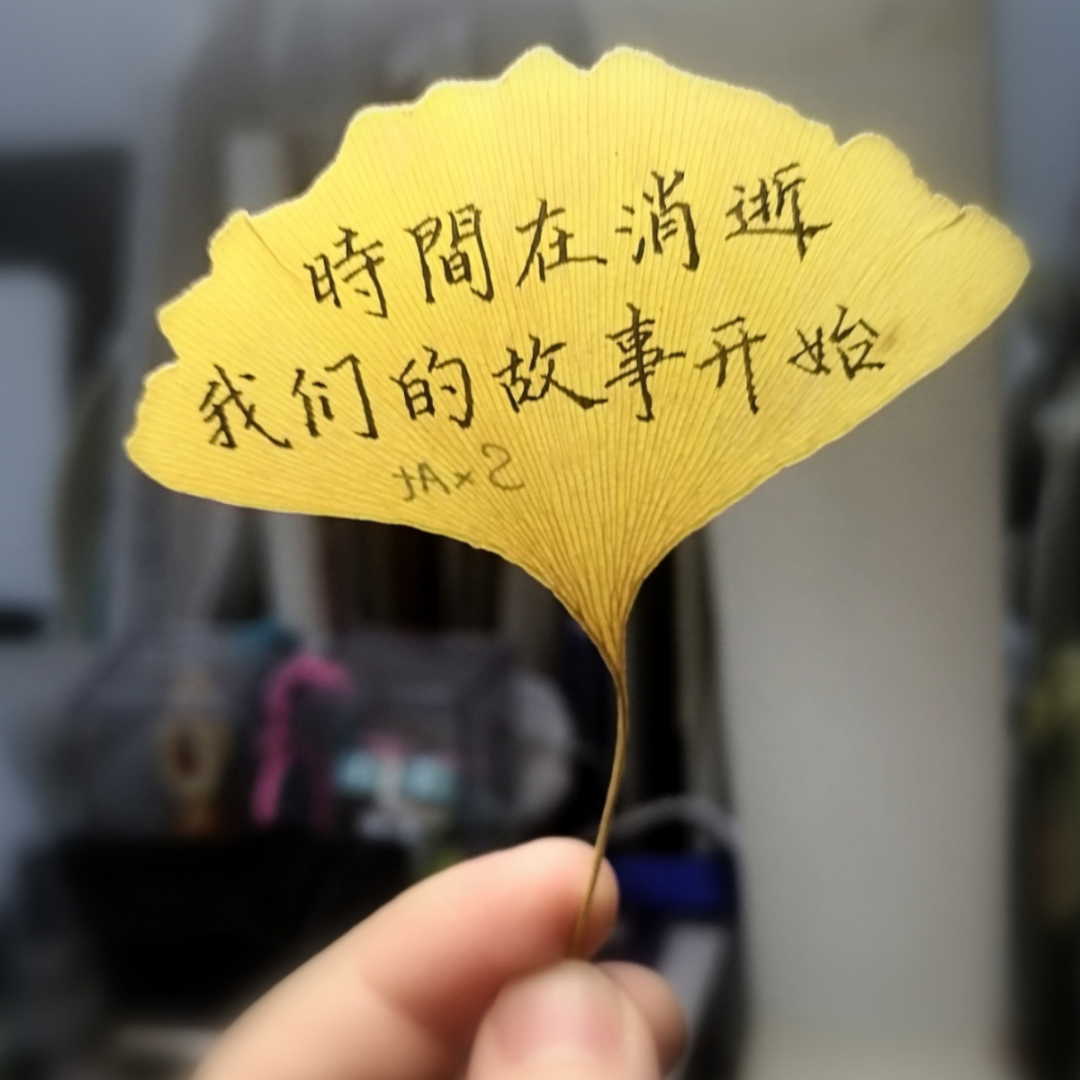 時間在消逝
我们的故事开始